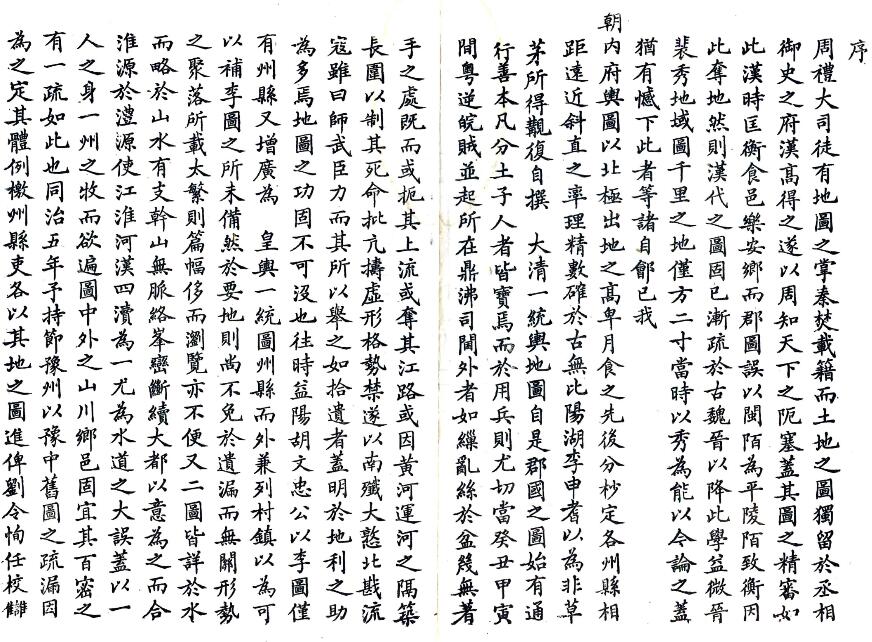 序
周禮大司徒有地圖之掌秦焚載籍而土地之圖獨留於丞相
御史之府漢髙得之遂以周知天下之阨塞蓋其圖之精審如
此漢時匡衡食邑樂安鄉而郡圖誤以閩陌為平陵陌致衡因
此奪地然則漢代之圖固已漸疏於古魏晉以降此學益微晉
裴秀地域圖千里之地僅方二寸當時以秀為能以今論之蓋
猶有憾下此者等諸自鄶已我
朝內府輿圖以北極出地之髙卑月食之先後分杪定各州縣相
距遠近斜直之率理精數確於古無比陽湖李申耆以為非草
茅所得觀復自撰 大清一統輿地圖自是郡國之圖始有通
行善本凡分土子人者皆寶焉而於用兵則尤切當癸丑甲寅
間粵逆皖賊並起所在鼎沸司閫外者如繅亂絲於盆幾無著
手之處既而或扼其上流或奪其江路或因黃河運河之隔築
長圍以制其死命批亢擣虛形格勢禁遂以南殲大憝北戡流
寇雖曰師武臣力而其所以舉之如拾遺者蓋明於地利之助
為多焉地圖之功固不可沒也往時益陽胡文忠公以李圖僅
有州縣又增廣為 皇輿一統圖州縣而外兼列村鎮以為可
以補李圖之所未備然於要地則尚不免於遺漏而無關形勢
之聚落所載太繁則篇幅侈而瀏覽亦不便又二圖皆詳於水
而略於山水有支幹山無脈絡峯巒斷續大都以意為之而合
淮源於澧源使江淮河漢四瀆為一尤為水道之大誤蓋以一
人之身一州之牧而欲遍圖中外之山川鄉邑固宜其百密之
有一疏如此也同治五年予持節豫州以豫中舊圖之疏漏因
為之定其體例檄州縣吏各以其地之圖進俾劉令恂任校讎